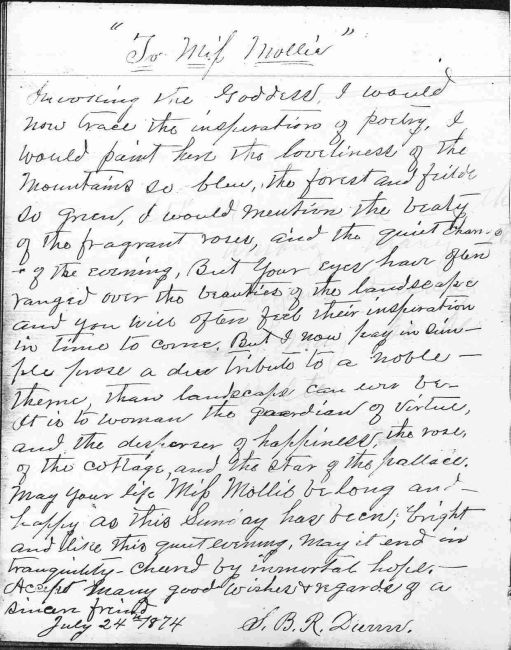 "To Miss Mollie"
Invoking the Goddess, I would
now trace the inspiration of poetry, I
would paint here the loveliness of the
Mountains so blue, the forest and fields
so green, I would mention the beaty
of the fragrant roses, and the quiet charm
of the evening, But Your eyes have often
ranged over the beauties of the landscape
and you will often feel their inspiration
in time to come. But I now pay in sim-
ple prose a due tribute to a noble-
theme, than landscape can ever be-
It is to woman the guardian of virtue,
and the disperser of happiness, the rose,
of the cottage, and the star of the pallace.
May your life Miss Mollie be long and-
happy as this Sunday has been, bright
and like this quiet evening, may it end in
tranquility- cheered by immortal hope,-
Accept many good wishes & regards of a
sincere friend
July 24th 1874 S. B. R. Dunn.